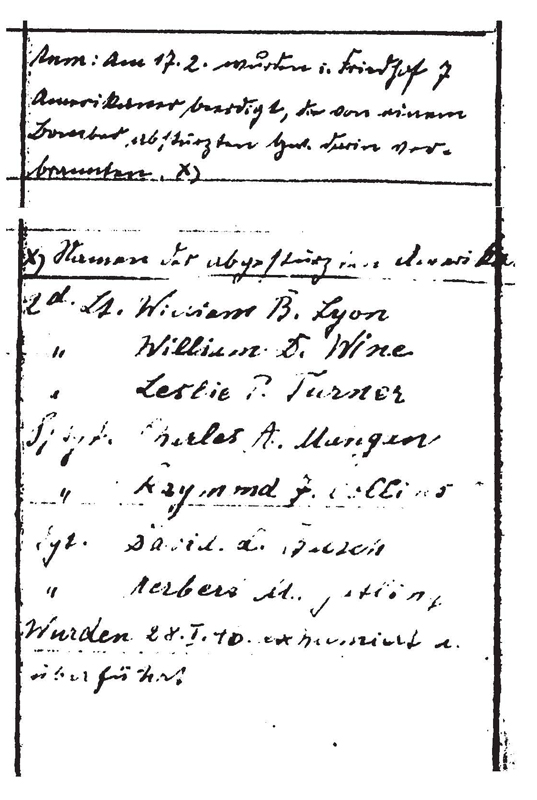 Anm: Am 17. 2. wurden i. Friedhof 7
Amerikaner beerdigt, die von einem
Bomber abstürzten u. darin ver-
brannten. X)
X) Namen der abgestürzten Amerika
2d. Lt. William B. Lyon
" William D. Wine
" Leslie P. Turner
Charles A. Mangen
" Raymond J. Collins
Sgt. David L.
" Herbert M.
Wurden 28. I. exhumiert u.
überführt